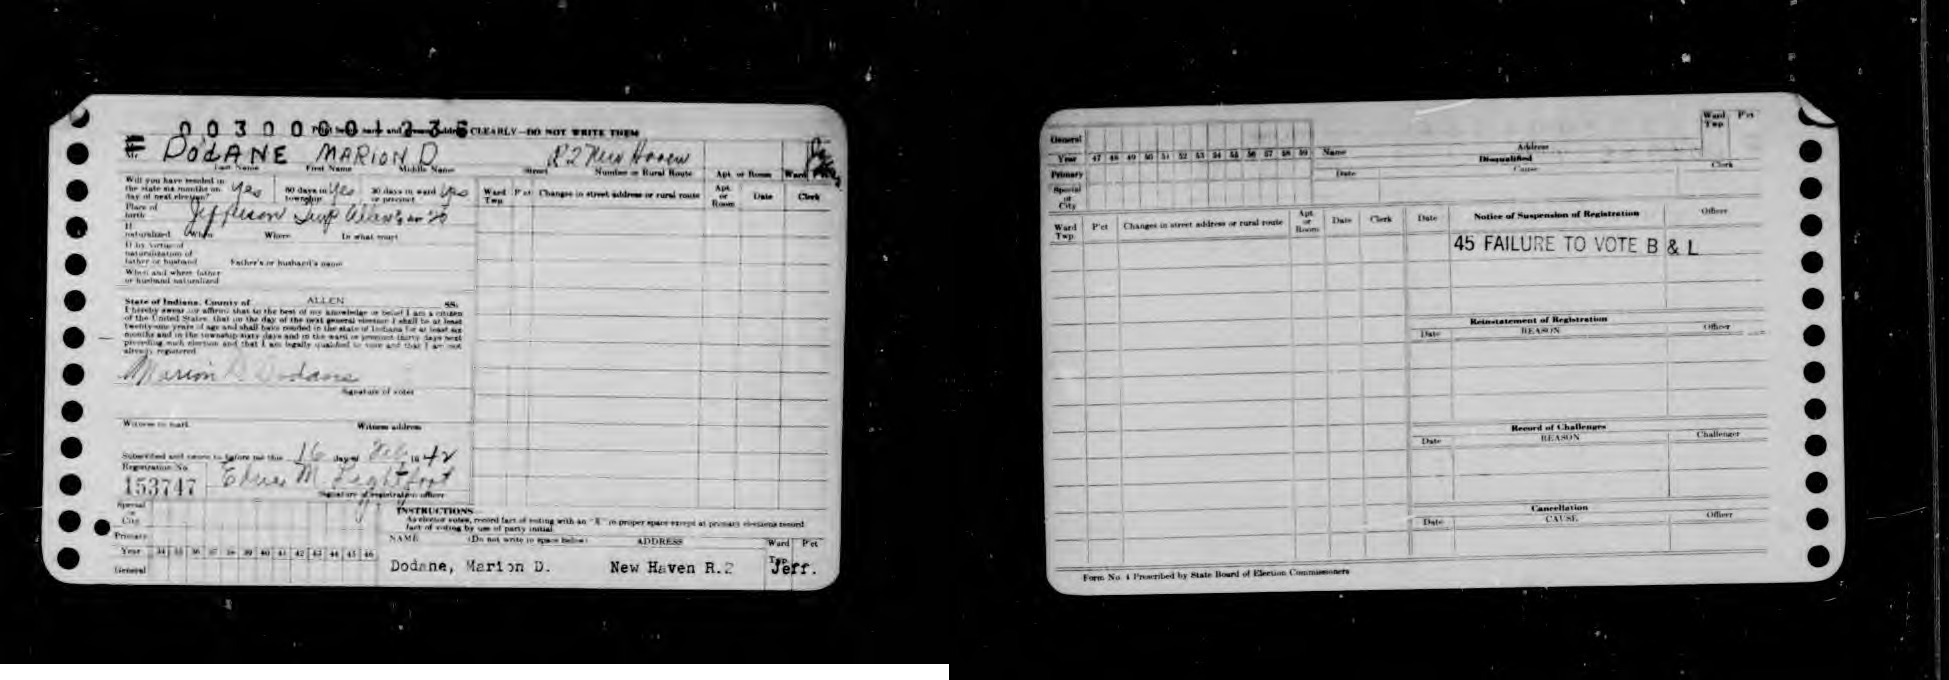 0030000 1236
Print both name and address CLEARLY—DO NOT WRITE THEM
Mr. DODANE MARION D R2 New Haven
Last Name First Name Middle Name Street Number or Rural Route Apt. or Room Ward
Will you have resided in the state six months on day of next election? Yes 60 days in township Yes 30 days in ward or precinct Yes
Ward Twp. P'ct Changes in street address or rural route Apt. or Room Date Clerk
Place of birth Jefferson Twp Allen Co
If naturalized When Where In what court
If by virtue of naturalization of father or husband Father's or husband's name
When and where father or husband naturalized
State of Indiana, County of ALLEN SS:
I hereby swear (or affirm) that to the best of my knowledge or belief I am a citizen
of the United States, that on the day of the next general election I shall be at least
twenty-one years of age and shall have resided in the state of Indiana for at least six
months and in the township sixty days and in the ward or precinct thirty days next
preceding such election and that I am legally qualified to vote and that I am not
already registered
Marion D. Dodane
Signature of voter
Witness to mark Witness address
Subscribed and sworn to before me this 16 day of Feb 1942
Registration No.
153747 M. Lightfoot
Signature of registration officer
INSTRUCTIONS
As elector votes, record fact of voting with an "X" in proper space except at primary elections record
fact of voting by use of party initial.
Special or City
Primary
Year 34 35 36 37 38 39 40 41 42 43 44 45 46
General
NAME (Do not write in space below) ADDRESS Ward Twp. P'ct
Dodane, Marion D. New Haven R.2 Jeff.
General
Year 47 48 49 50 51 52 53 54 55 56 57 58 59
Primary
Special or City
Name Address Ward Twp. P'ct
Disqualified
Date Cause Clerk
Ward Twp. P'ct Changes in street address or rural route Apt. or Room Date Clerk
Date Notice of Suspension of Registration Officer
45 FAILURE TO VOTE B & L
Reinstatement of Registration
Date REASON Officer
Record of Challenges
Date REASON Challenger
Cancellation
Date CAUSE Officer
Form No. 4 Prescribed by State Board of Election Commissioners